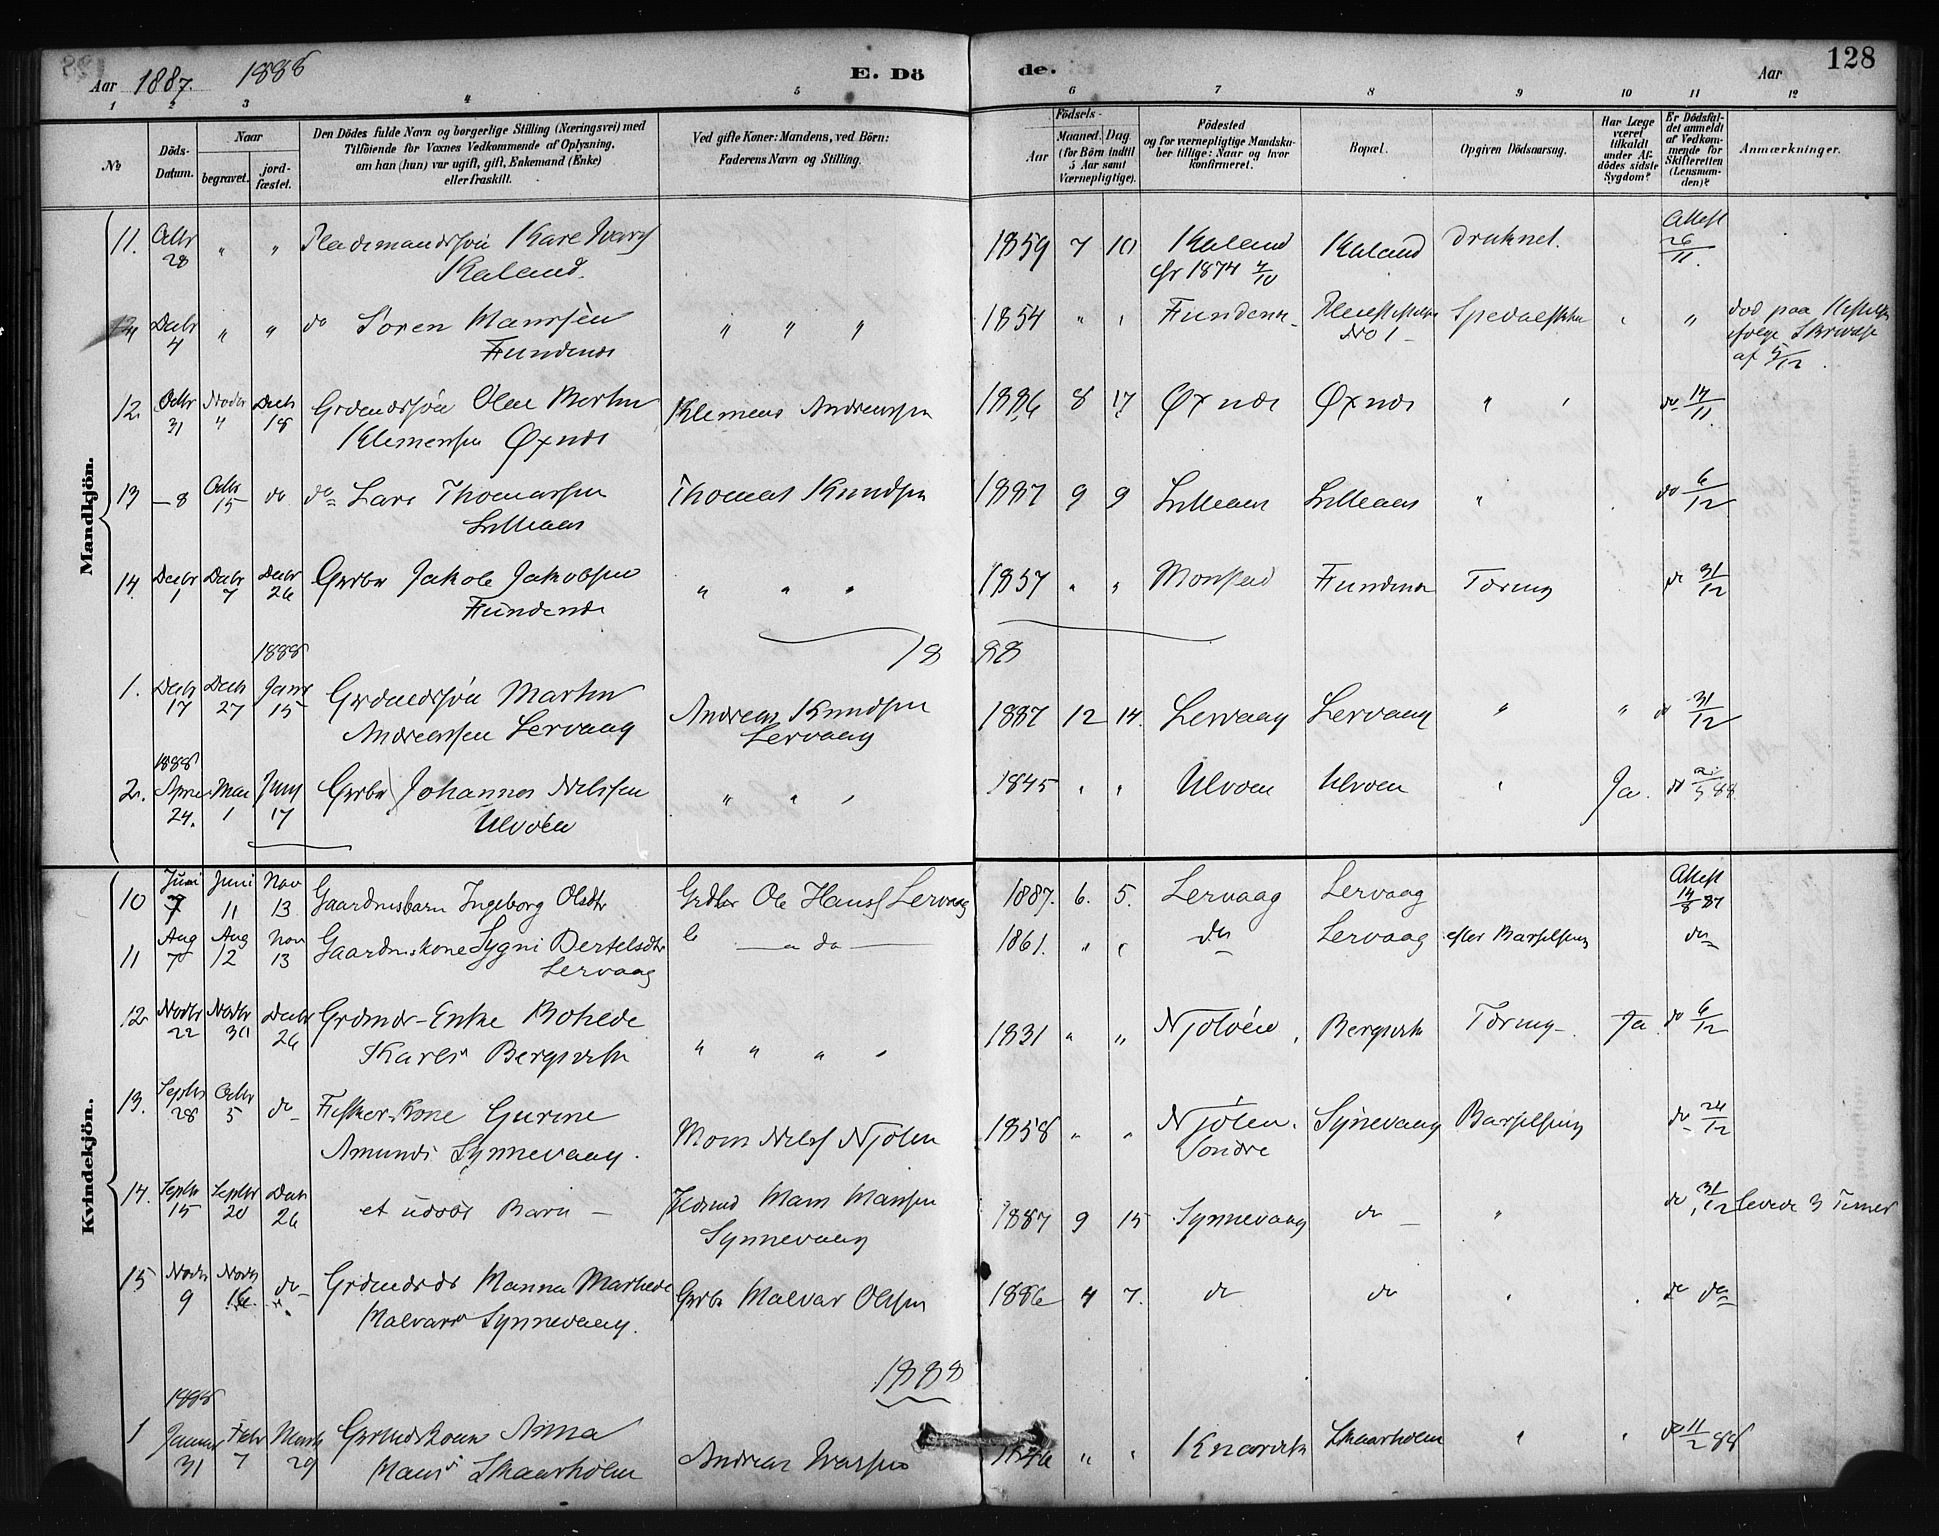 128
Aar 1887. 1888 E. Dö de. Aar
1 2 3 4 5 6 7 8 9 10 11 12
No
Döds-Datum.
Naar
begravet.
jord-fæstet.
Den Dödes fulde Navn og borgerlige Stilling (Næringsvei) med
Tilföiende for Voxnes Vedkommende af Oplysning,
om han (hun) var ugift, gift, Enkemand (Enke)
eller fraskilt.
Ved gifte Koner: Mandens, ved Börn:
Faderens Navn og Stilling.
Födsels-
Aar
Maaned. Dag.
(for Börn indtil
5 Aar samt
Værnepligtige).
Födested
og for værnepligtige Mandskaber tillige: Naar og hvor
konfirmeret.
Bopæl.
Opgiven Dödsaarsag.
Har Læge
været
tilkaldt
under Afdödes sidste
Sygdom?
Er Dödsfaldet anmeldt
af Vedkommende for
Skifteretten
(Lensmanden)?
Anmærkninger.
Mandkjön.
11. Octbr 28 " " Pladsmandssøn Kare Ivars 1859 7 10 Kaland Kaland druknet. Attest 26/11
Kaland. 1874
Decbr 4 " " do Soren Mansen " " " 1854 " " Fundenæs No 1 Spedalskh " død paa
Fundenæs ifølge Skrivelse
af 5/12
12. Octbr 31 Novbr 4 Decbr 18 Grdmdssøn Olai Martin Klemens Andreassen 1886 8 17 Øxnæs Øxnæs " do 14/11
Klemensen Øxnæs
13 – 8 Octbr 15 do do Lars Thomassen Thomas Knudsen 1887 9 9 Lilleaas Lilleaas " do 6/12
Lilleaas
14. Decbr 1 Decbr 7 Decbr 26 Grdbr Jakob Jakobsen " " " 1857 " " Fundenæs Tæring do 31/12
Fundenæs
1888
1888
1. Decbr 17 Decbr 27 Janr 15 Grdmdssøn Martin Andreas Knudsen 1887 12 14. Lervaag Lervaag " " do 31/12
Andreassen Lervaag Lervaag
1888
2. April 24. Mai 1 Juni 17 Grdbr Johannes Nilssen " " " 1845 " " Ulvøen Ulvøen Ja. do 88
Ulvøen
Kvindekjön.
10 Juni 7 Juni 11 Nov 13 Gaardmsbarn Ingeborg Olsdtr Grdbr Ole Hanss Lervaag 1887. 6. 5. Lervaag Lervaag Attest 14/8 87
11 Aug 7 Aug 12 Nov 13 Gaardm.kone Sygni Bertelsdtr – do – 1861. " " do Lervaag efter Barselseng do
Lervaag
12 Novbr 22 Novbr 30 Decbr 26 Grdmds-Enke Bothilde " " " " 1831 " " Njoløen Bergsvik Tæring Ja do 6/12
Karls Bergsvik
13. Septbr 28 Octbr 5 do Fisker-Kone Gurine Mons Nilss Njølen 1858 " " Njølen. Synevaag Barselseng do 24/12
Amunds Synnevaag. Søndre
14. Septbr 15 Septbr 20 Decbr 26 et udøbt Barn – Mons Monsen 1887 9 15 Synnevaag do – " do 31/12 levede 3 Timer
Synnevaag
15 Novbr 9 Novbr 16. do Grdmdsdtr Manna Mathilde Grdbr Malvar Olsen 1886 4 7. do do " do do
Malvars Synnevaag.
1888
1888
1 Januar 31 Febr 7 Marts 29 Grdmdskone Anna Andreas Ivarsen " " Knarvik Skaarholm " do 11/2 88
Mons Skaarholm